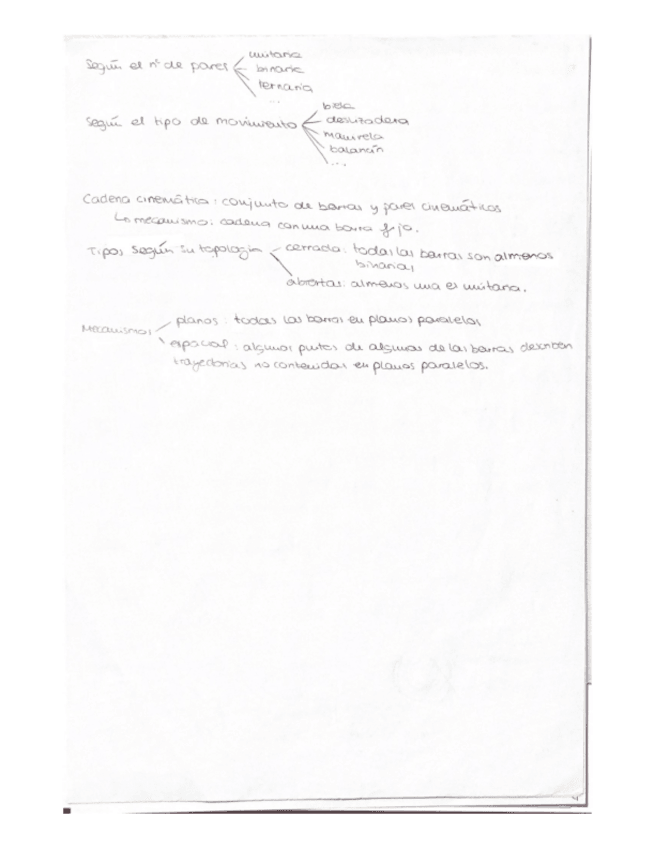 Según el nº de pares
unitaria
binaria
ternaria
...
Según el tipo de movimiento
biela
deslizadera
manivela
balancín
...
Cadena cinemática: conjunto de barras y pares cinemáticos
↳ mecanismo: cadena con una barra fija.
Tipos según su topología
cerrada: todas las barras son almenos
binarias
abiertas: almenos una es unitaria.
Mecanismos
planos: todas las barras en planos paralelos
espacial: algunos puntos de algunas de las barras describen
trayectorias no contenidas en planos paralelos.